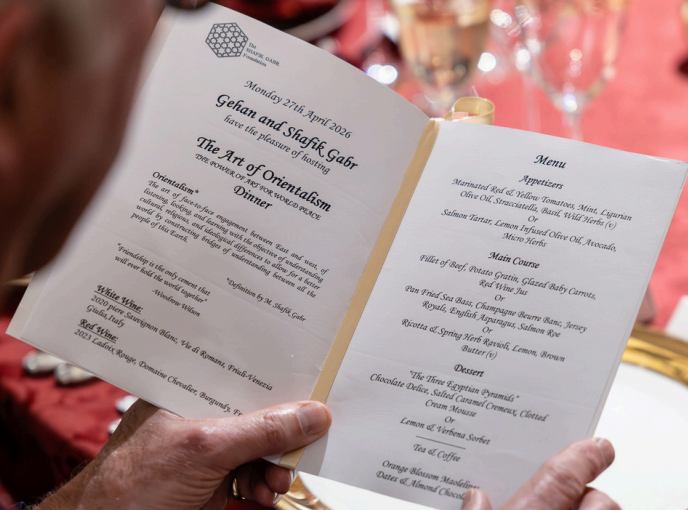 The
SHAFIK GABR
Foundation
Monday 27th April 2026
Gehan and Shafik Gabr
have the pleasure of hosting
The Art of Orientalism
THE POWER OF ART FOR WORLD PEACE
Dinner
Orientalism*
The art of face-to-face engagement between East and west, of
listening, looking, and learning with the objective of understanding
cultural, religious, and ideological differences to allow for a better
world by constructing bridges of understanding between all the
people of this Earth.
*Definition by M. Shafik Gabr
"Friendship is the only cement that
will ever hold the world together"
-Woodrow Wilson
White Wine:
2020 piere Sauvignon Blanc, Vie di Romans, Friuli-Venezia
Giulia, Italy
Red Wine:
2023 Ladoix Rouge, Domaine Chevalier, Burgundy, Fr
Menu
Appetizers
Marinated Red & Yellow Tomatoes, Mint, Ligurian
Olive Oil, Stracciatella, Basil, Wild Herbs (v)
Or
Salmon Tartar, Lemon Infused Olive Oil, Avocado,
Micro Herbs
Main Course
Fillet of Beef, Potato Gratin, Glazed Baby Carrots,
Red Wine Jus
Or
Pan Fried Sea Bass, Champagne Beurre Banc, Jersey
Royals, English Asparagus, Salmon Roe
Or
Ricotta & Spring Herb Ravioli, Lemon, Brown
Butter (v)
Dessert
"The Three Egyptian Pyramids"
Chocolate Delice, Salted Caramel Cremeux, Clotted
Cream Mousse
Or
Lemon & Verbena Sorbet
Tea & Coffee
Orange Blossom
Dates & Almond